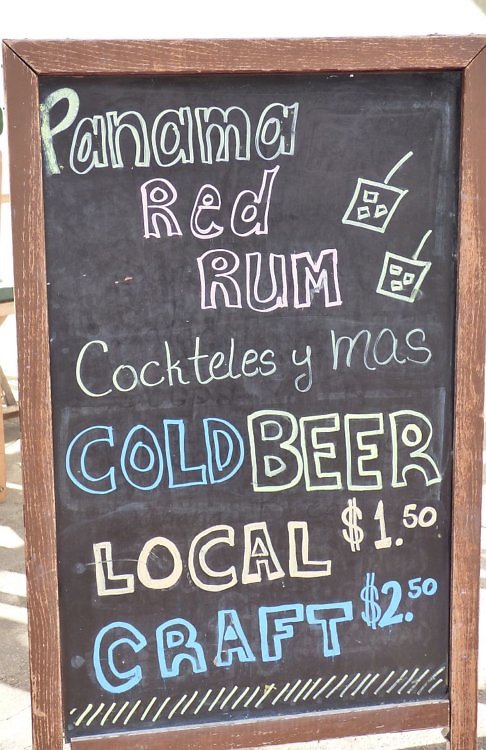 Panama
Red
RUM
Cockteles y mas
COLD BEER
LOCAL $1.50
CRAFT $2.50